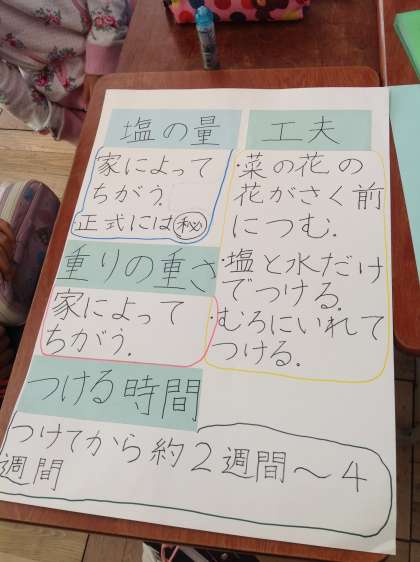 塩の量
家によって
ちがう。
正式には㊙
重りの重さ
家によって
ちがう。
つける時間
つけてから約2週間〜4
週間
工夫
・菜の花の
花がさく前
につむ。
・塩と水だけ
でつける。
・むろにいれて
つける。